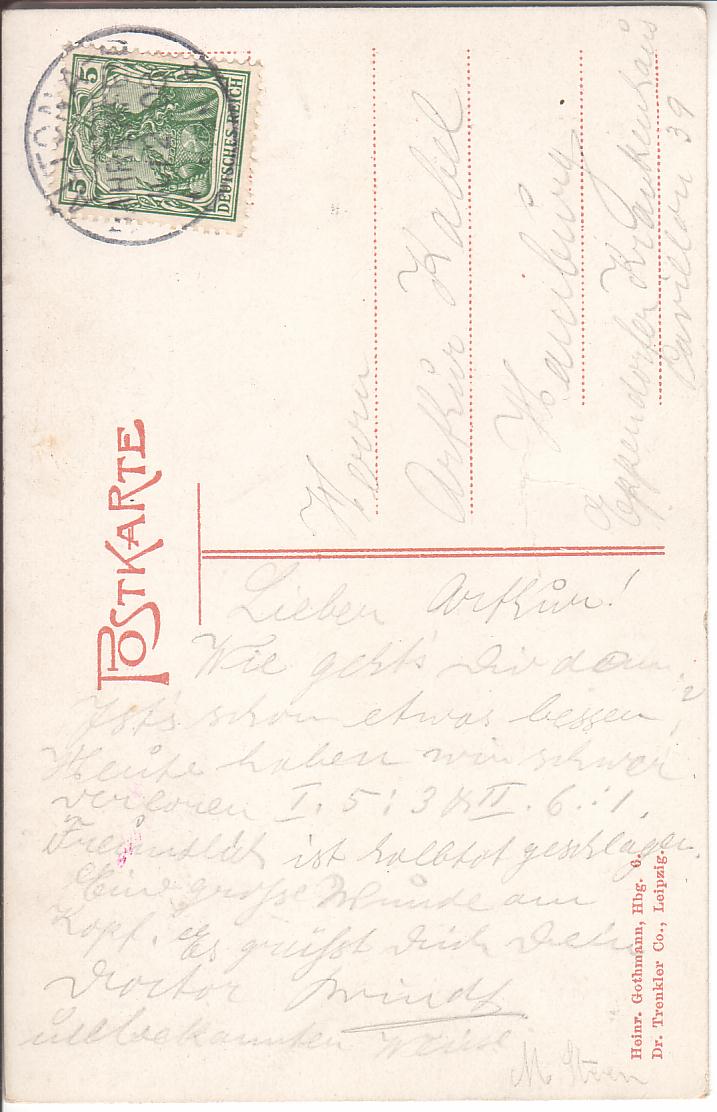 POSTKARTE
5 5
DEUTSCHES REICH
ALTONA
Herrn
Arthur Kabel
Hamburg
Eppendorfer Krankenhaus
Pavillon 39
Lieber Arthur!
Wie geht's Dir denn?
Ist's schon etwas besser?
Heute haben wir schwer
verloren I. 5:3 & II. 6:1.
ist halbtot geschlagen.
Eine große Wunde am
Kopf. Es grüßt Dich Dein
Doctor
unbekannten
M. Steen
Heinr. Gothmann, Hbg. 6.
Dr. Trenkler Co., Leipzig.